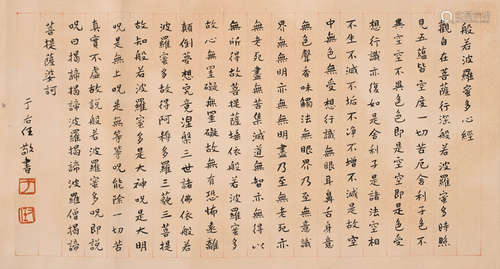 般若波羅蜜多心經
觀自在菩薩行深般若波羅蜜多時照
見五蘊皆空度一切苦厄舍利子色不
異空空不異色色即是空空即是色受
想行識亦復如是舍利子是諸法空相
不生不滅不垢不淨不增不減是故空
中無色無受想行識無眼耳鼻舌身意
無色聲香味觸法無眼界乃至無意識
界無無明亦無無明盡乃至無老死亦
無老死盡無苦集滅道無智亦無得以
無所得故菩提薩埵依般若波羅蜜多
故心無罣礙無罣礙故無有恐怖遠離
顛倒夢想究竟涅槃三世諸佛依般若
波羅蜜多故得阿耨多羅三藐三菩提
故知般若波羅蜜多是大神呪是大明
呪是無上呪是無等等呪能除一切苦
真實不虛故說般若波羅蜜多呪即說
呪曰揭諦揭諦波羅揭諦波羅僧揭諦
菩提薩婆訶
于右任敬書